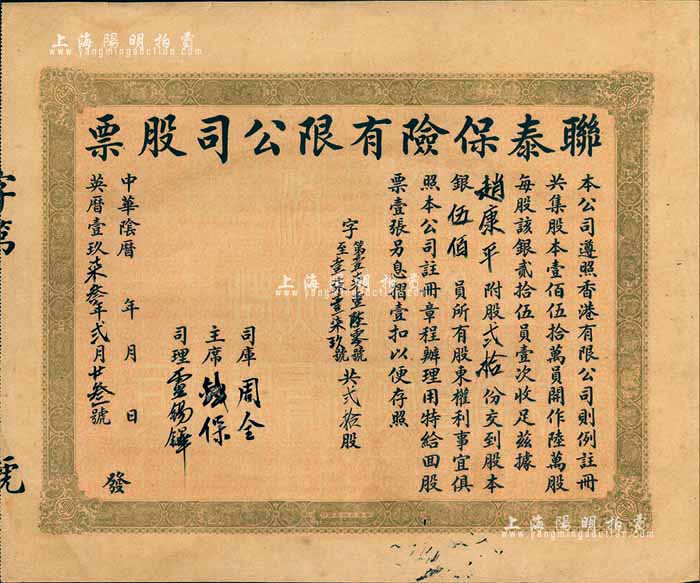 上海陽明拍賣
www.yangmingauction.com
聯泰保險有限公司股票
本公司遵照香港有限公司則例註冊
共集股本壹佰伍拾萬員開作陸萬股
每股該銀貳拾伍員壹次收足茲據
趙康平附股弍拾份交到股本
銀伍佰員所有股東權利事宜俱
照本公司註冊章程辦理用特給回股
票壹張另息摺壹扣以便存照
字第壹柒壹陸零號
至壹柒壹柒玖號
共弍拾股
司庫周全
主席 保
司理 錫鏵
中華陰曆 年 月 日
英曆壹玖柒叁年弍月廿叁號
發
字第
號
上海陽明拍賣
www.yangmingauction.com
上海陽明拍賣
www.yangmingauction.com